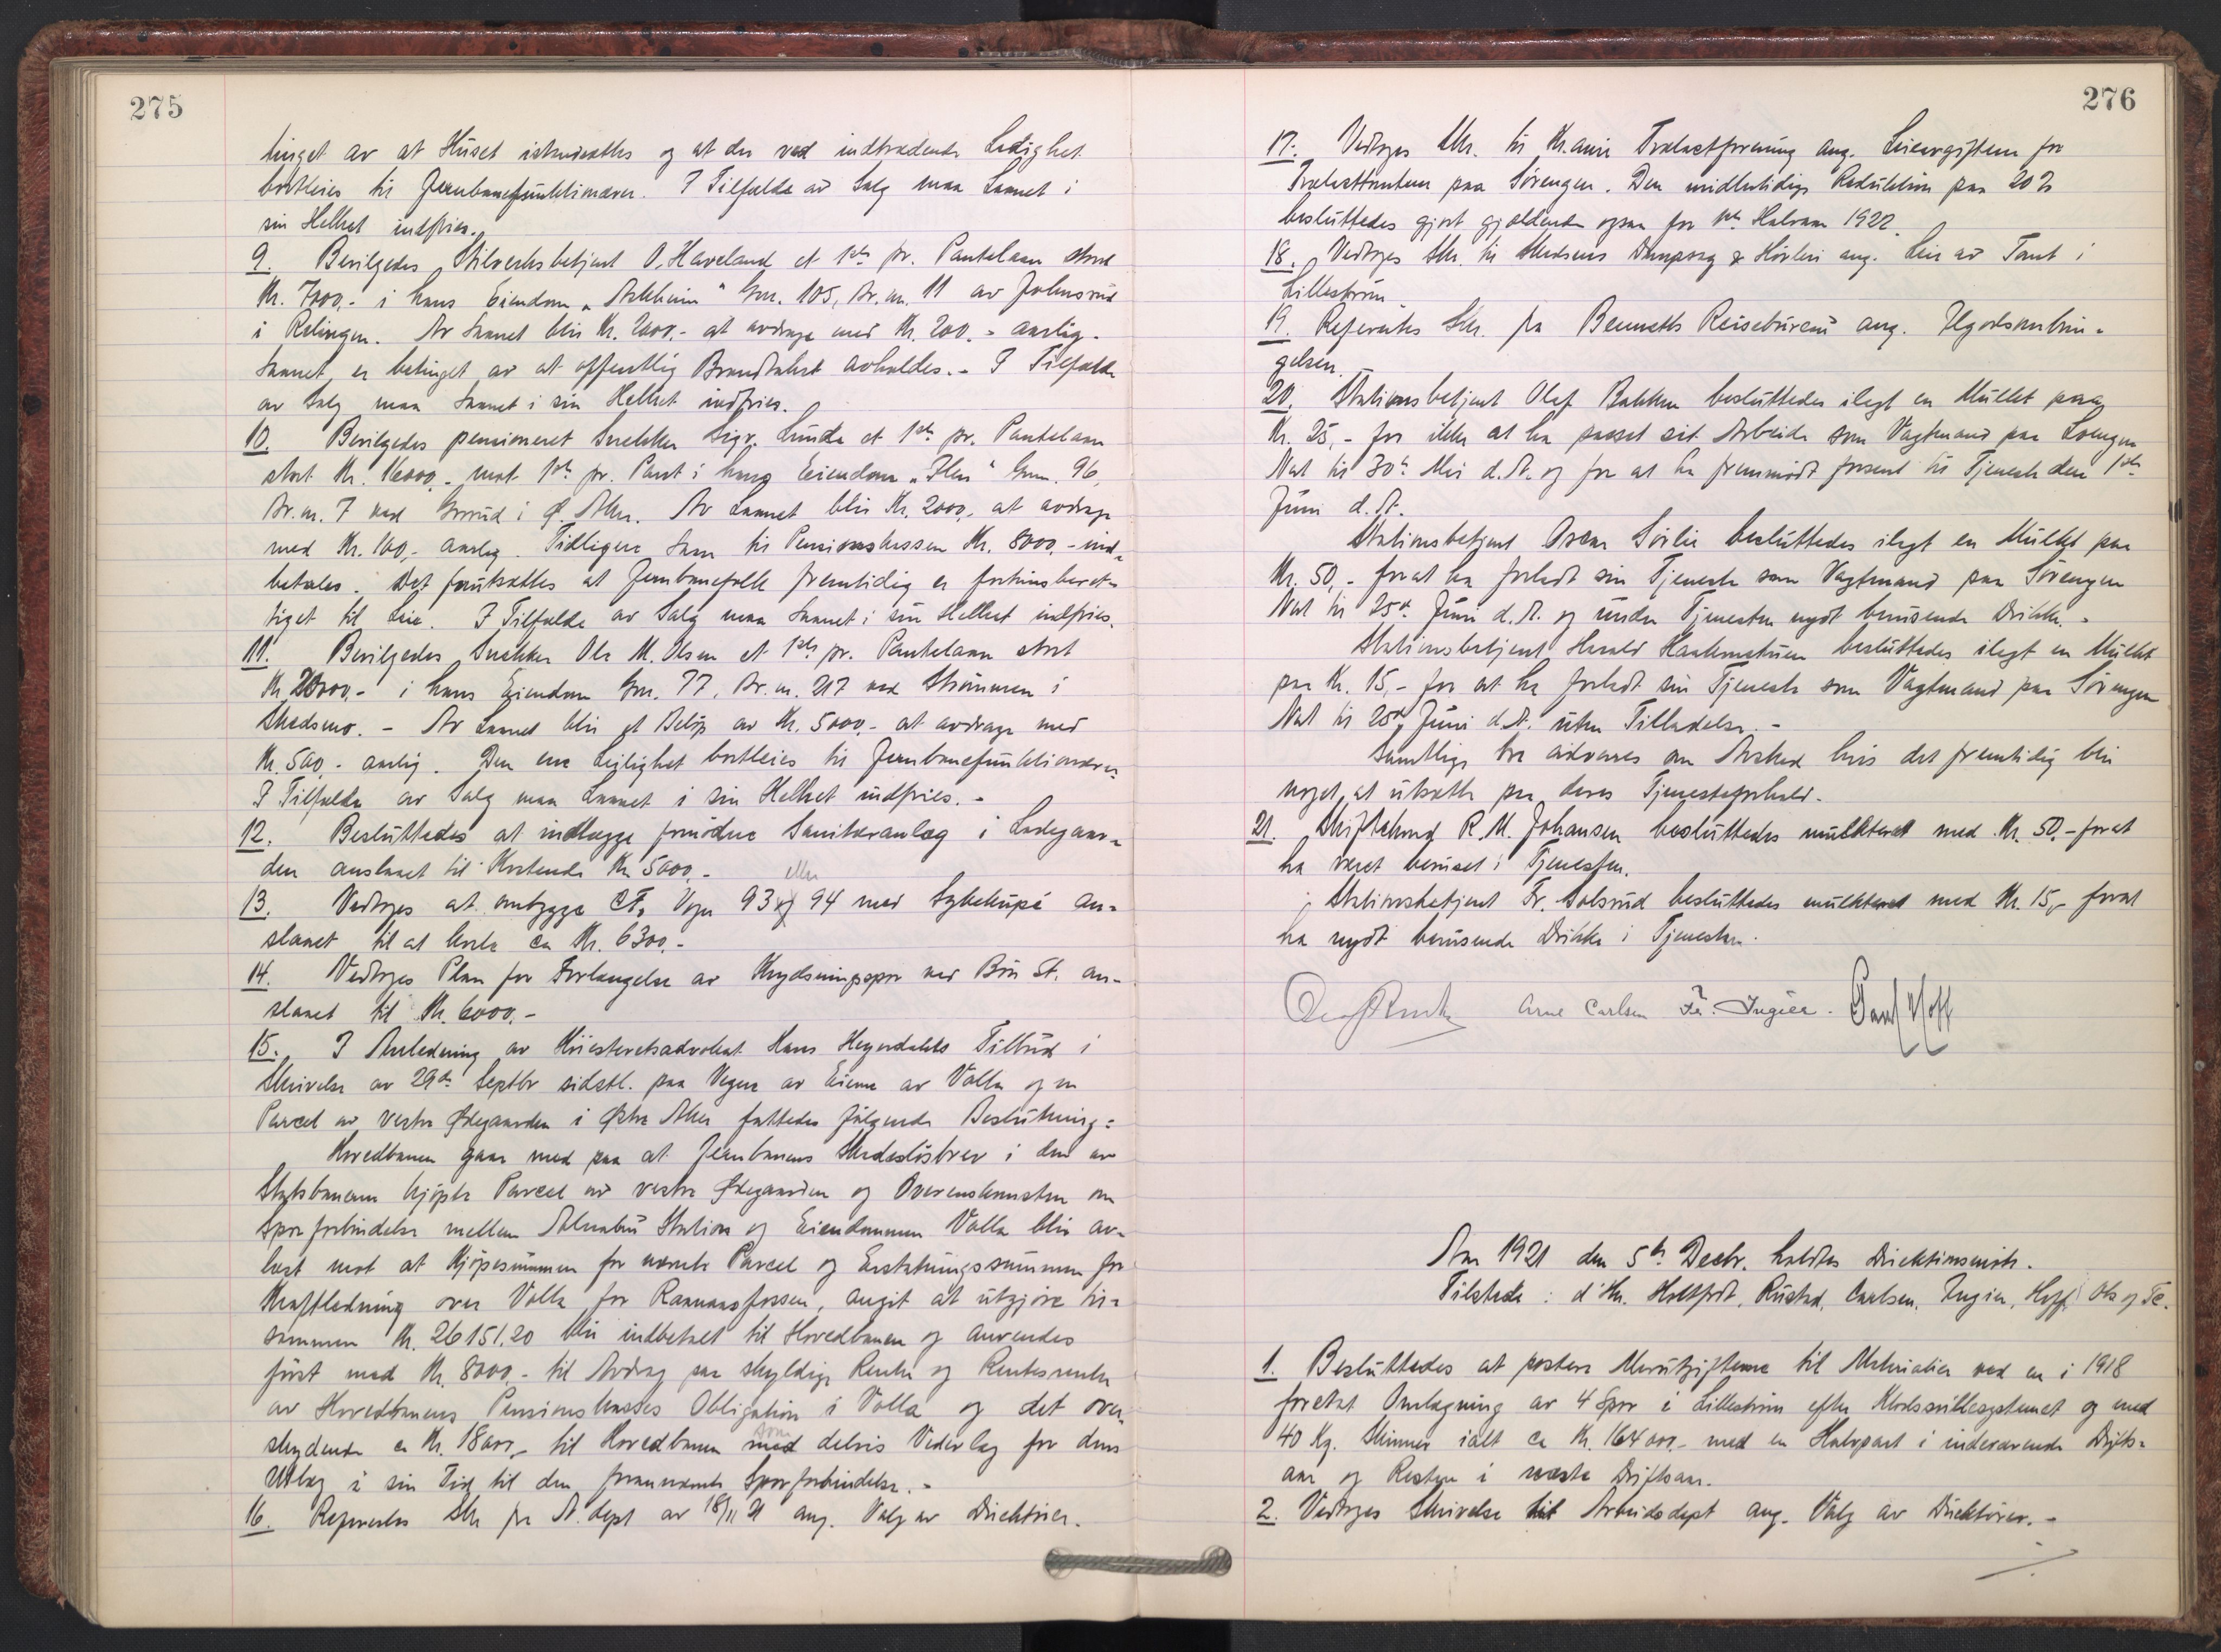 275
tinget av at Huset istandsættes og at der ved indtrædende Ledighet
bortleies til Jernbanefunktionærer. I Tilfælde av Salg maa Laanet i
sin Helhet indfries.
9. Bevilgedes Stilverksbetjent O. Haveland et 1ste pr. Pantelaan stort
Kr. 7000,- i hans Eiendom "Solheim" Gnr. 105, Br.nr. 11 av Johnsrud
i Rælingen. Av Laanet blir Kr. 2000,- at avdrage med Kr. 200,- aarlig.
Laanet er betinget av at offentlig Brandtakst avholdes. - I Tilfælde
av Salg maa Laanet i sin Helhet indfries.
10. Bevilgedes pensioneret Snekker Sigv. Lunde et 1ste pr. Pantelaan
stort Kr. 16000,- mot 1ste pr. Pant i hans Eiendom Gnr. 96,
Br.nr. 7 ved Grorud i Ø. Aker. Av Laanet blir Kr. 2000,- at avdrage
med Kr. 100,- aarlig. Tidligere Laan til Pensionskassen Kr. 8000,- ind-
betales. Det forutsættes at Jernbanefolk fremtidig er fortrinsberet-
tiget til Leie. I Tilfælde av Salg maa Laanet i sin Helhet indfries.
11. Bevilgedes Snekker Ole M. Olsen et 1ste pr. Pantelaan stort
Kr. 20000,- i hans Eiendom Gnr. 77, Br.nr. 217 ved Strømmen i
Skedsmo. - Av Laanet blir et Beløp av Kr. 5000,- at avdrage med
Kr. 500,- aarlig. Den ene Leilighet bortleies til Jernbanefunktionærer.
I Tilfælde av Salg maa Laanet i sin Helhet indfries. -
12. Besluttedes at indlægge fornødne Sanitæranlæg i Ladegaar-
den anslaaet til Kostende Kr. 5000,-
eller
13. Vedtoges at ombygge CFo Vogn 93 og 94 med Sykekupé an-
slaaet til at koste ca Kr. 6300,-
14. Vedtoges Plan for Forlængelse av Krydsningsspor ved Bøn St. an-
slaaet til Kr. 6000,-
15. I Anledning av Høiesteretsadvokat Hans Heyerdahls Tilbud i
Skrivelse av 29de Septbr sidstl. paa Vegne av Eierne av Volla og en
Parcel av vestre Ødegaarden i Østre Aker fattedes følgende Beslutning:
Hovedbanen gaar med paa at Jernbanens Skadesløsbrev i den av
Statsbanerne kjøpte Parcel av vestre Ødegaarden og Overenskomsten om
Sporforbindelse mellem Alnabru Station og Eiendommen Volla blir av-
lyst mot at Kjøpesummen for nævnte Parcel og Erstatningssummen for
Kraftledning over Volla for Raanaasfossen, angit at utgjøre til-
sammen Kr. 26151.20 blir indbetalt til Hovedbanen og anvendes
først med Kr. 8000,- til Avdrag paa skyldige Renter og Rentesrenter
av Hovedbanens Pensionskasses Obligation i Volla og det over-
som
skydende ca Kr. 18000,- til Hovedbanen med delvis Vederlag for dens
Utlæg i sin Tid til den forannævnte Sporforbindelse. -
16. Refereertes Skr fra A. dept av 18/11 21 ang. Valg av Direktører.
276
17. Vedtoges Skr. til Kr.ania Trælastforening ang. Leieavgiften for
Trælasttomtene paa Sørengen. Den midlertidige Reduktion paa 20 %
besluttedes gjort gjældende ogsaa for 1ste Halvaar 1922.
18. Vedtoges Skr. til Dampsag & Høvleri ang. Leie av Tomt i
Lillestrøm
19. Refereertes Skr. fra Bennetts Reisebureau ang. Ilgodsombrin-
gelsen.
20. Stationsbetjent Olaf Bakken besluttedes ilagt en Mulkt paa
Kr. 25,- for ikke at ha passet sit Arbeide som Vagtmand paa Loengen
Nat til 30te Mai d.A. og for at ha fremmødt forsent til Tjeneste den 1ste
Juni d.A.
Stationsbetjent Oscar Sørlie besluttedes ilagt en Mulkt paa
Kr. 50,- for at ha forladt sin Tjeneste som Vagtmand paa Sørengen
Nat til 25de Juni d.A. og under Tjenesten nydt berusende Drikke. -
Stationsbetjent Harald besluttedes ilagt en Mulkt
paa Kr. 15,- for at ha forladt sin Tjeneste som Vagtmand paa Sørengen
Nat til 25de Juni d.A. uten Tilladelse. -
Samtlige tre advares om Avsked hvis det fremtidig blir
noget at utsætte paa deres Tjenesteforhold.
21. Skiftekond R. M. Johansen besluttedes mulkteret med Kr. 50,- for at
ha været beruset i Tjenesten.
Stationsbetjent Fr. Solsrud besluttedes mulkteret med Kr. 15,- for at
ha nydt berusende Drikke i Tjenesten.
Arne Carlsen Fr. Ingier. Paul Hoff
Aar 1921 den 5te Decbr. holdtes Direktionsmøte.
Tilstede: d'Hr. Holtfodt, Rustad, Carlsen, Ingier, Hoff,
1. Besluttedes at postere Merutgifterne til Materialier ved en i 1918
foretat Omlægning av 4 Spor i Lillestrøm efter Klodssvillesystemet og med
40 Kg. Skinner ialt ca Kr. 164000,- med en Halvpart i indeværende Drifts-
aar og Resten i næste Driftsaar.
2. Vedtoges Skrivelse til Arbeidsdept ang. Valg av Direktører. -